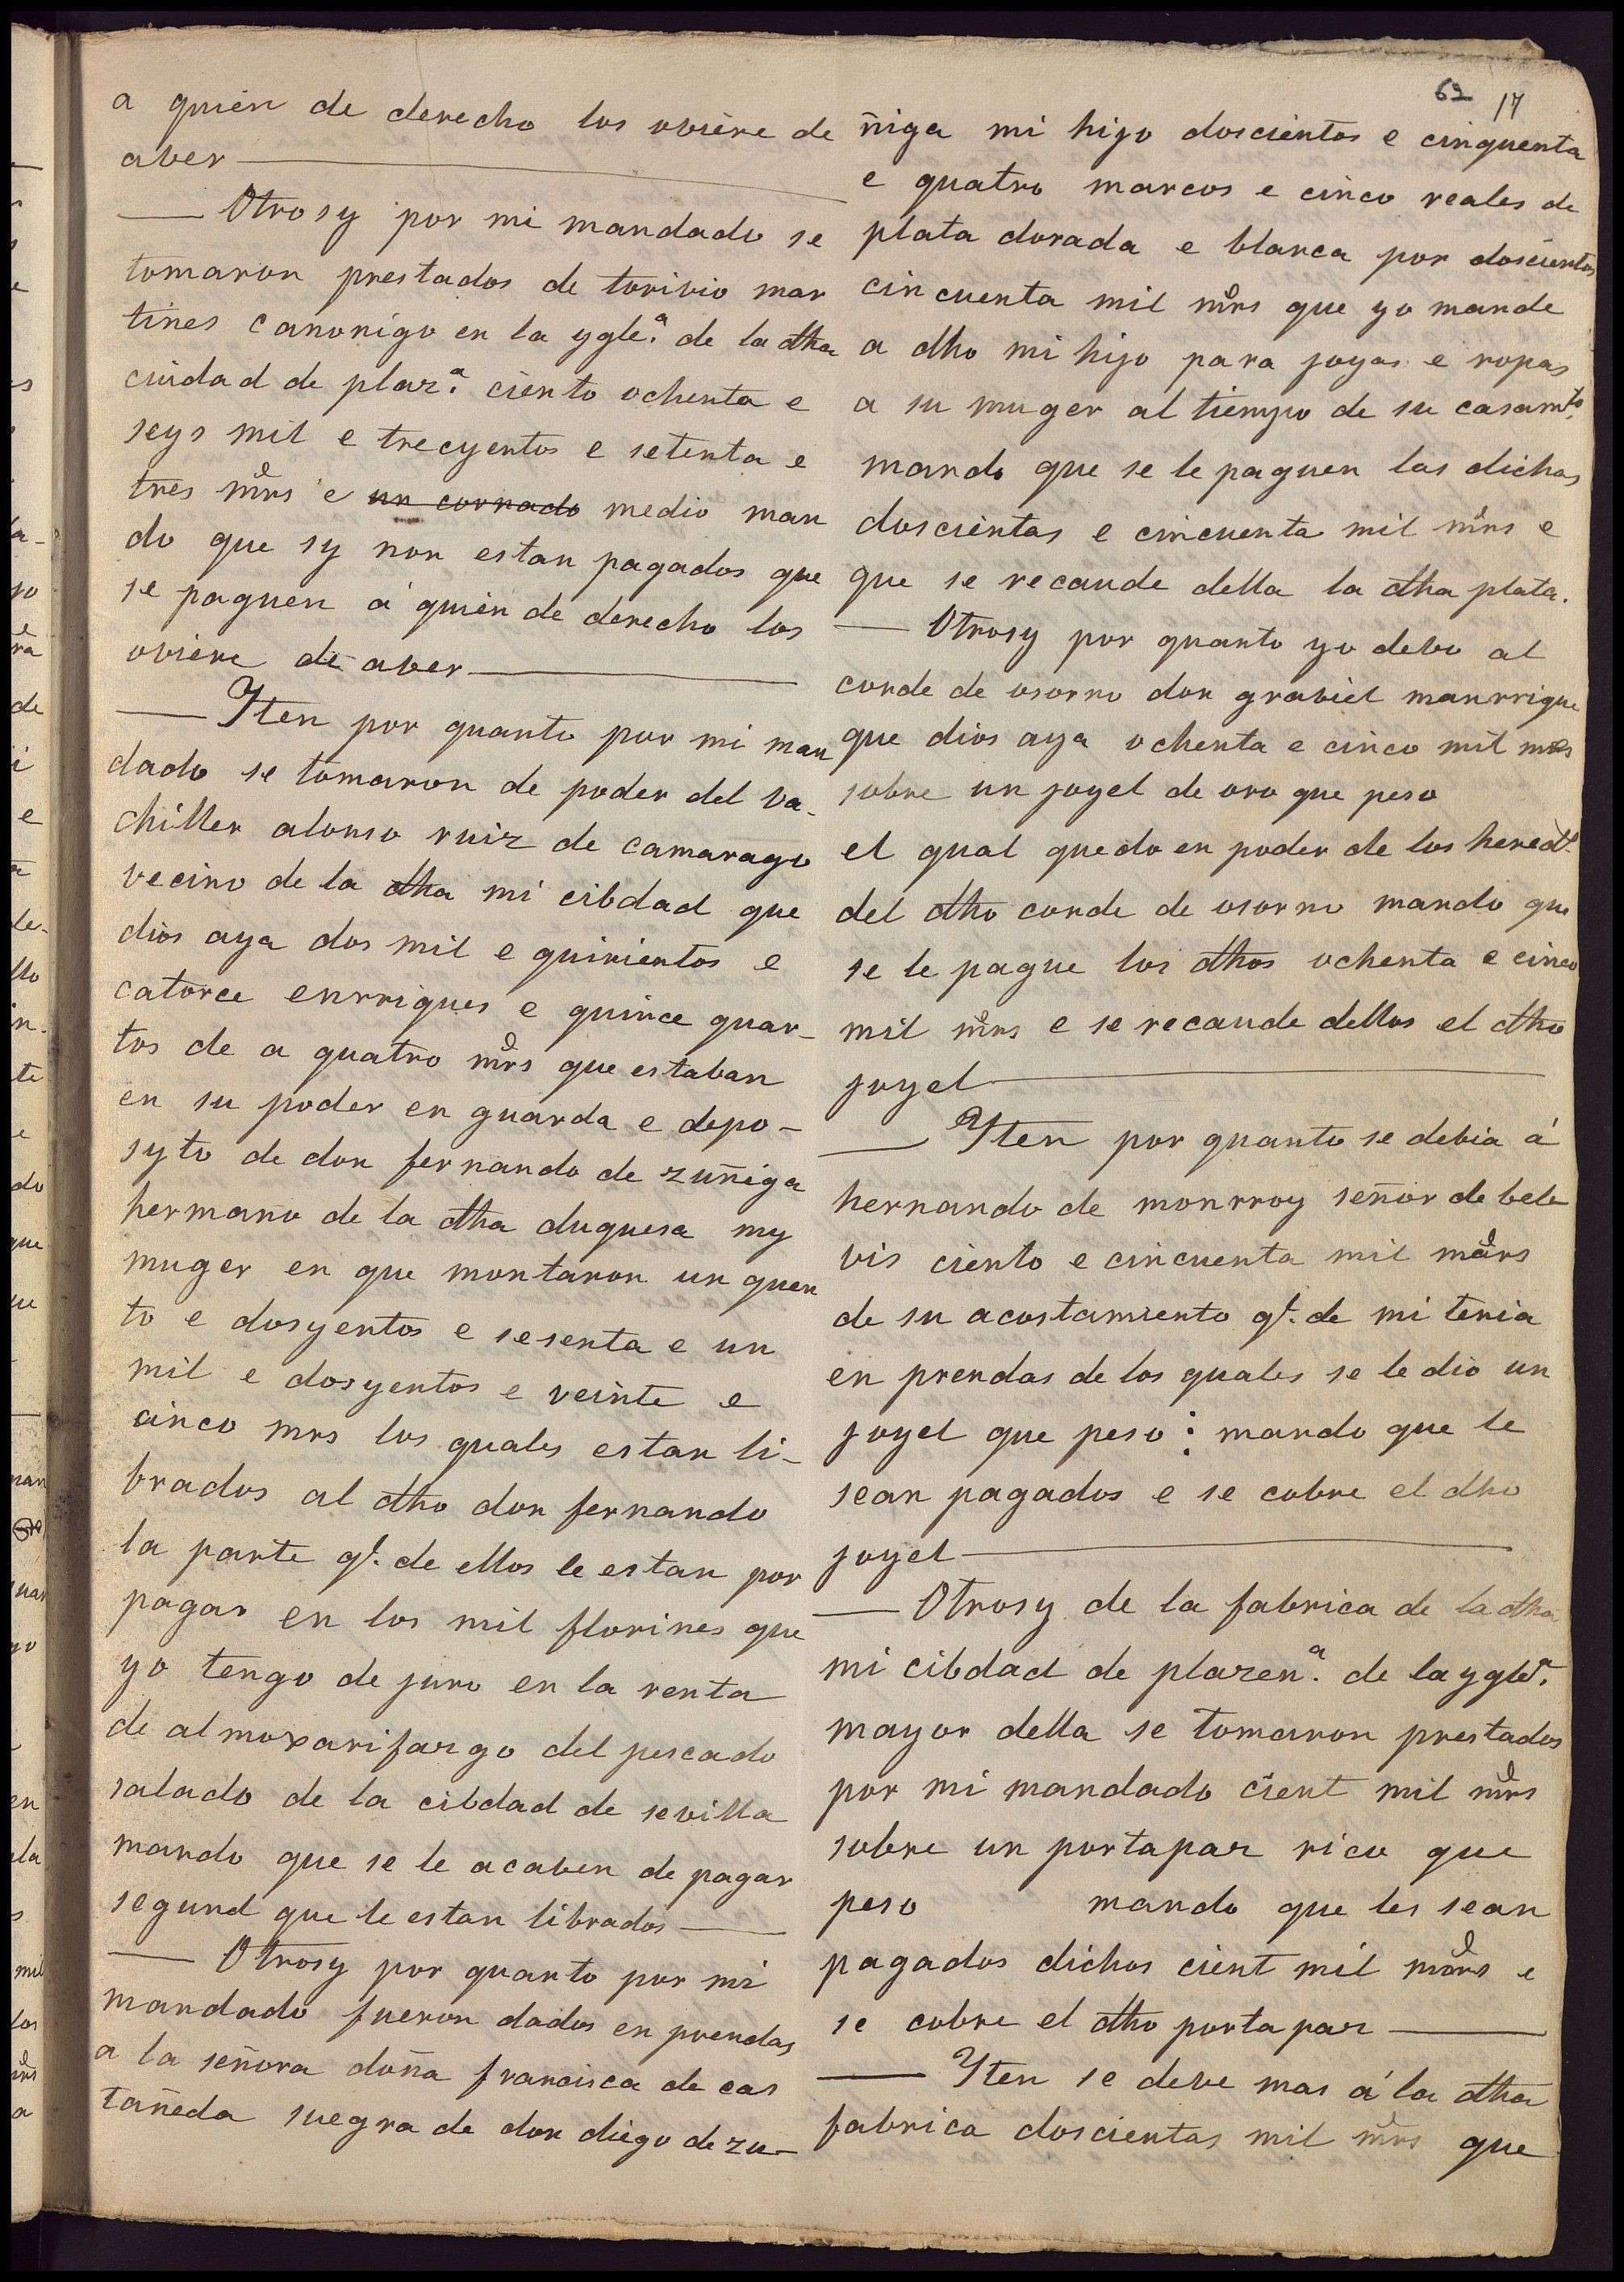 62 17
a quien de derecho los oviere de
aber
Otrosy por mi mandado se
tomaron prestados de torivio mar
tines canonigo en la ygleª. de la dha
ciudad de plazª. ciento ochenta e
seys mil e trecyentos e setenta e
tres mrs e un cornado medio man
do que sy non estan pagados que
se paguen á quien de derecho los
oviere de aver
Yten por quanto por mi man
dado se tomaron de poder del va-
chiller alonso ruiz de camarago
vecino de la dha mi cibdad que
dios aya dos mil e quinientos e
catorce enrriques e quince quar-
tos de a quatro mrs que estaban
en su poder en guarda e depo-
syto de don fernando de zuñiga
hermano de la dha duquesa my
muger en que montaron un quen
to e dosyentos e sesenta e un
mil e dosyentos e veinte e
cinco mrs los quales estan li-
brados al dho don fernando
la parte q. de ellos le estan por
pagar en los mil florines que
yo tengo de juro en la renta
de almoxarifazgo del pescado
salado de la cibdad de sevilla
mando que se le acaben de pagar
segund que le estan librados
Otrosy por quanto por mi
mandado fueron dados en prendas
a la señora doña francisca de cas
tañeda suegra de don diego de zu-
ñiga mi hijo doscientos e cinquenta
e quatro marcos e cinco reales de
plata dorada e blanca por doscientos
cincuenta mil mrs que yo mande
a dho mi hijo para joyas e ropas
a su muger al tiempo de su casamto.
mando que se le paguen las dichas
doscientas e cincuenta mil mrs e
que se recaude della la dha plata.
Otrosy por quanto yo debo al
conde de osorno don graviel manrrique
que dios aya ochenta e cinco mil mrs
sobre un joyel de oro que peso
el qual quedo en poder de los hered.
del dho conde de osorno mando que
se le pague los dhos ochenta e cinco
mil mrs e se recaude dellos el dho
joyel
Yten por quanto se debia á
hernando de monrroy señor de bele
vis ciento e cincuenta mil mrs
de su acostamiento q. de mi tenia
en prendas de los quales se le dio un
joyel que peso : mando que le
sean pagados e se cobre el dho
joyel
Otrosy de la fabrica de la dha
mi cibdad de plazenª. de la ygleª.
mayor della se tomaron prestados
por mi mandado cient mil mrs
sobre un portapaz rico que
peso mando que les sean
pagados dichos cient mil mrs e
se cobre el dho portapaz
Yten se deve mas á la dha
fabrica doscientas mil mrs que